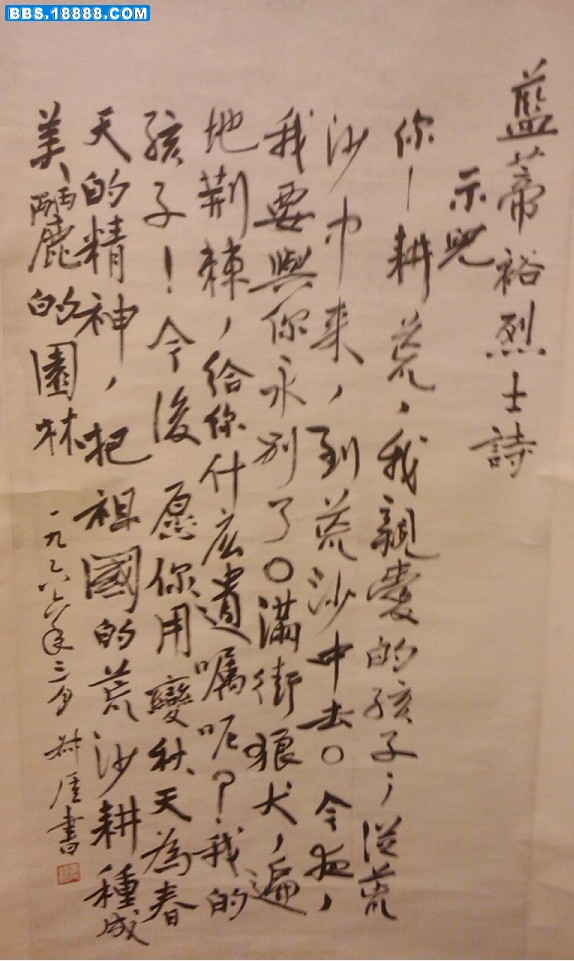 BBS.18888.COM
藍蒂裕烈士詩
示兒
你—耕荒，我親愛的孩子；從荒
沙中来，到荒沙中去。今夜，
我要與你永别了。滿街狼犬，遍
地荆棘，給你什庅遺囑呢？我的
孩子！今後愿你用變秋天為春
天的精神，把祖國的荒沙耕種成
美麗的園林
一九六六年三月 書